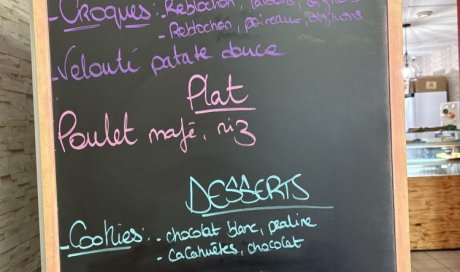 - Croques: - Reblochon, lardons, oignons
- Reblochon, poireaux, oignons
- Velouté patate douce
Plat
Poulet mafé, riz
DESSERTS
- Cookies: - chocolat blanc, praline
- cacahuètes, chocolat